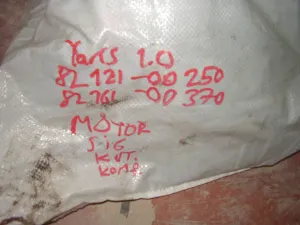 Yaris 1.0
82121-00250
82161-00370
MOTOR
SİG
KUT.
KOMP